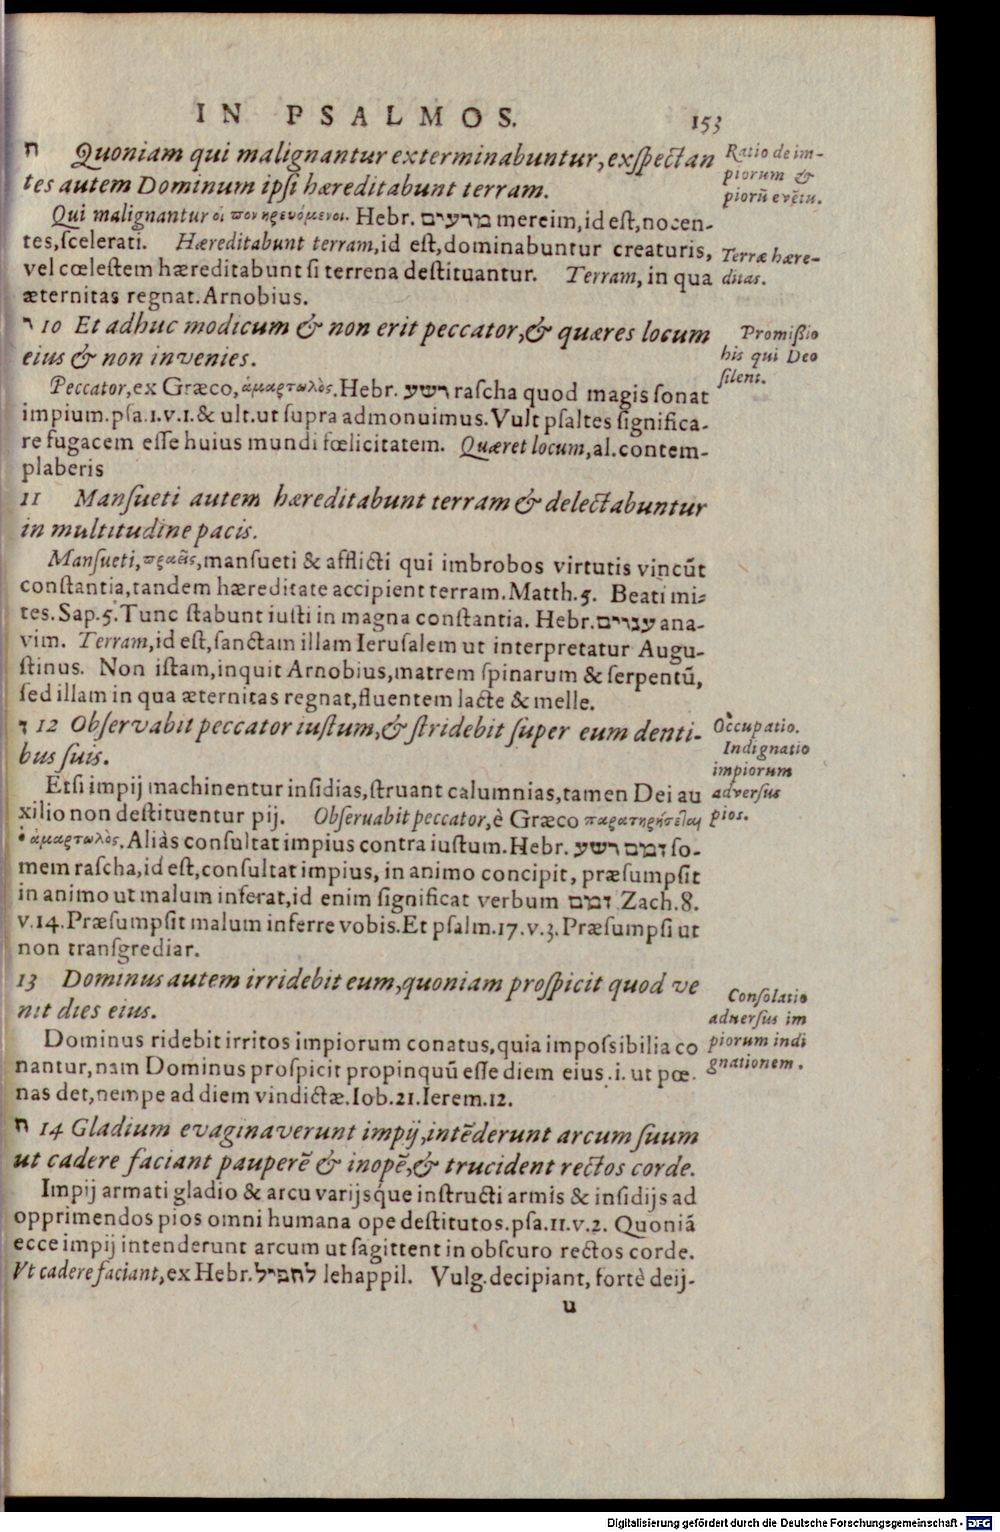 IN PSALMOS. 153
ח Quoniam qui malignantur exterminabuntur, exſpectan
tes autem Dominum ipſi hæreditabunt terram.
Ratio de im-
piorum &
piorũ evẽtu.
Qui malignantur οἱ πονηρευόμενοι. Hebr. מרעים mereim, id eſt, nocen-
tes, ſcelerati. Hæreditabunt terram, id eſt, dominabuntur creaturis,
vel cœleſtem hæreditabunt ſi terrena deſtituantur. Terram, in qua
æternitas regnat. Arnobius.
Terræ hære-
ditas.
ו 10 Et adhuc modicum & non erit peccator, & quæres locum
eius & non invenies.
Promiſſio
his qui Deo
ſilent.
Peccator, ex Græco, ἁμαρτωλὸς. Hebr. רשע raſcha quod magis ſonat
impium. pſa. 1. v. 1. & ult. ut ſupra admonuimus. Vult pſaltes ſignifica-
re fugacem eſſe huius mundi fœlicitatem. Quæret locum, al. contem-
plaberis
11 Manſueti autem hæreditabunt terram & delectabuntur
in multitudine pacis.
Manſueti, πραεῖς, manſueti & afflicti qui imbrobos virtutis vincũt
conſtantia, tandem hæreditate accipient terram. Matth. 5. Beati mi-
tes. Sap. 5. Tunc ſtabunt iuſti in magna conſtantia. Hebr. ענוים ana-
vim. Terram, id eſt, ſanctam illam Ieruſalem ut interpretatur Augu-
ſtinus. Non iſtam, inquit Arnobius, matrem ſpinarum & ſerpentũ,
ſed illam in qua æternitas regnat, fluentem lacte & melle.
ז 12 Obſervabit peccator iuſtum, & ſtridebit ſuper eum denti-
bus ſuis.
Occupatio.
Indignatio
impiorum
adverſus
pios.
Etſi impij machinentur inſidias, ſtruant calumnias, tamen Dei au
xilio non deſtituentur pij. Obſeruabit peccator, è Græco παρατηρήσεται
ὁ ἁμαρτωλὸς. Aliàs conſultat impius contra iuſtum. Hebr. זמם רשע ſo-
mem raſcha, id eſt, conſultat impius, in animo concipit, præſumpſit
in animo ut malum inferat, id enim ſignificat verbum זמם Zach. 8.
v. 14. Præſumpſit malum inferre vobis. Et pſalm. 17. v. 3. Præſumpſi ut
non tranſgrediar.
13 Dominus autem irridebit eum, quoniam proſpicit quod ve
nit dies eius.
Conſolatio
aduerſus im
piorum indi
gnationem.
Dominus ridebit irritos impiorum conatus, quia impoſsibilia co
nantur, nam Dominus proſpicit propinquũ eſſe diem eius .i. ut pœ-
nas det, nempe ad diem vindictæ. Iob. 21. Ierem. 12.
ח 14 Gladium evaginaverunt impij, intẽderunt arcum ſuum
ut cadere faciant pauperẽ & inopẽ, & trucident rectos corde.
Impij armati gladio & arcu varijsq́ue inſtructi armis & inſidijs ad
opprimendos pios omni humana ope deſtitutos. pſa. 11. v. 2. Quoniã
ecce impij intenderunt arcum ut ſagittent in obſcuro rectos corde.
Vt cadere faciant, ex Hebr. להפיל lehappil. Vulg. decipiant, fortè deij-
u
Digitalisierung gefördert durch die Deutsche Forschungsgemeinschaft - DFG